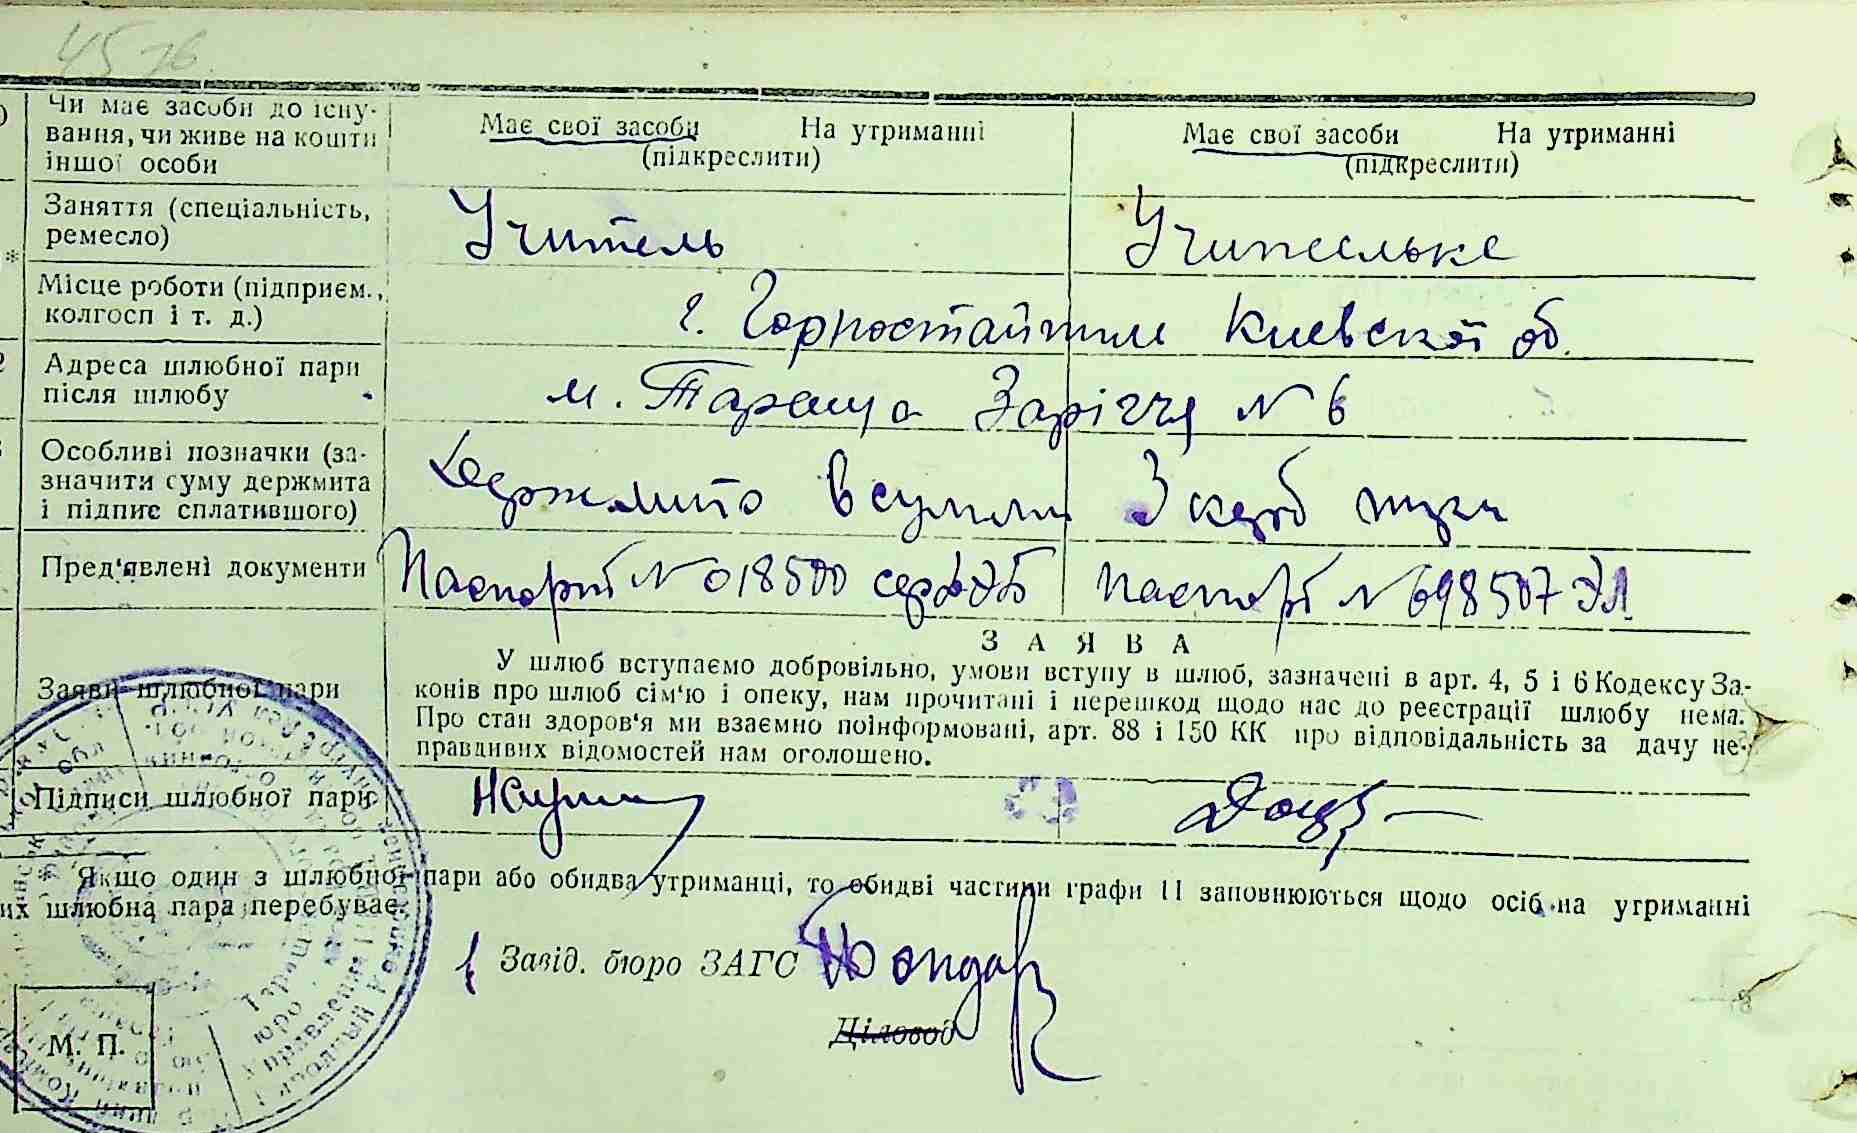 45 зв.
Чи має засоби до існу-
вання, чи живе на кошти
іншої особи
Має свої засоби На утриманні
(підкреслити)
Має свої засоби На утриманні
(підкреслити)
Заняття (спеціальність,
ремесло)
Учитель
Учителька
Місце роботи (підприєм.,
колгосп і т. д.)
г. Горностайпиль Киевской об.
Адреса шлюбної пари
після шлюбу
м. Тараща Заріччя № 6
Особливі позначки (за-
значити суму держмита
і підпис сплатившого)
Держмито в сумми 3 карб
Пред'явлені документи
Паспорт № 018500
Паспорт № 698507 ЭЛ
Заяви шлюбної пари
ЗАЯВА
У шлюб вступаємо добровільно, умови вступу в шлюб, зазначені в арт. 4, 5 і 6 Кодексу За-
конів про шлюб сім'ю і опеку, нам прочитані і перешкод щодо нас до реєстрації шлюбу нема.
Про стан здоров'я ми взаємно поінформовані, арт. 88 і 150 КК про відповідальність за дачу не-
правдивих відомостей нам оголошено.
Підписи шлюбної пари
Якщо один з шлюбної пари або обидва утриманці, то обидві частини графи 11 заповнюються щодо осіб на утриманні
их шлюбна пара перебуває.
Завід. бюро ЗАГС Бондар
Діловод
М. П.